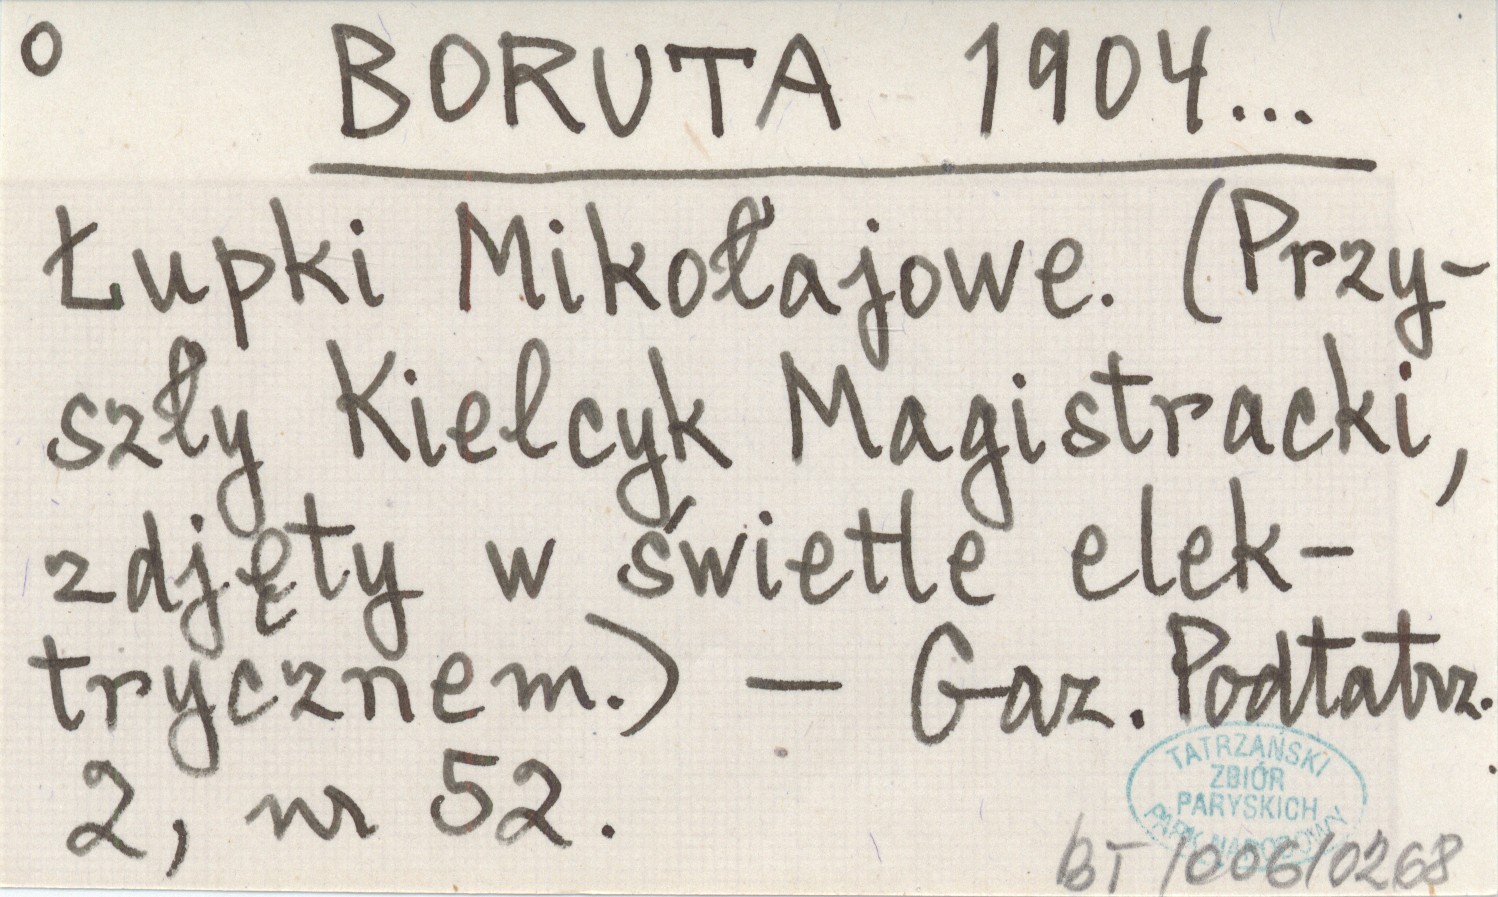 o BORUTA 1904...
Łupki Mikołajowe. (Przy-
szły Kielcyk Magistracki,
zdjęty w świetle elek-
trycznem.) — Gaz. Podtatrz.
2, nr 52.
TATRZAŃSKI
ZBIÓR
PARYSKICH
PARK NARODOWY
BT/006/0268